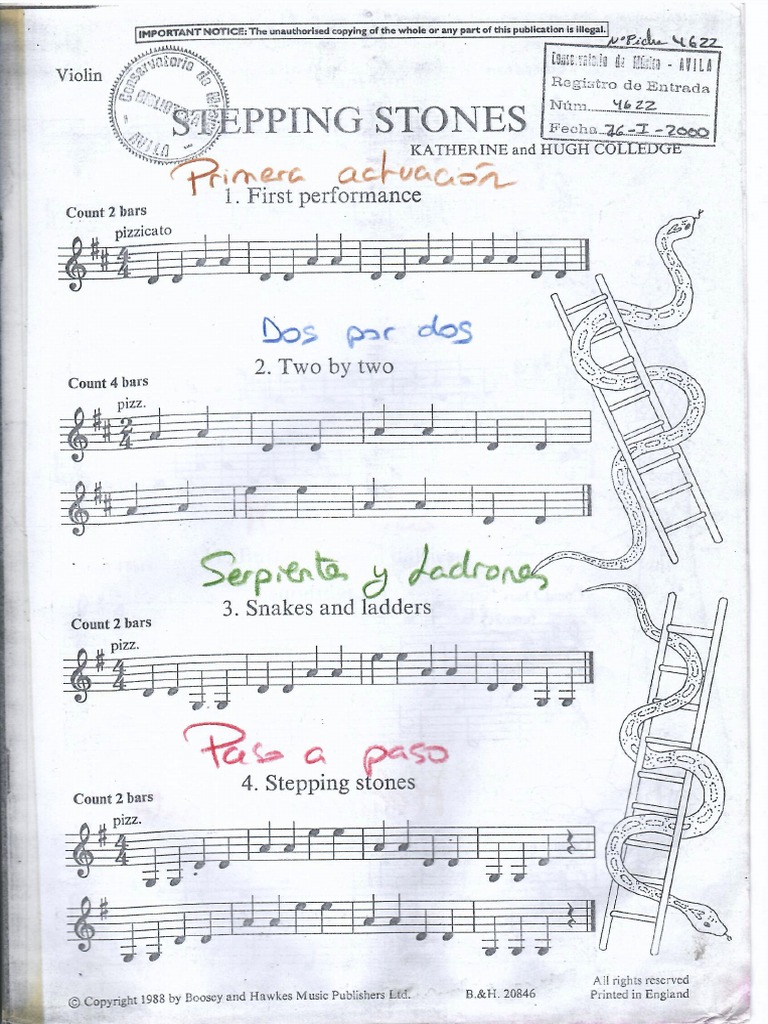 IMPORTANT NOTICE: The unauthorised copying of the whole or any part of this publication is illegal.
Nº Ficha 4622
Violin
Conservatorio de Música - AVILA
Registro de Entrada
Núm. 4622
Fecha 26-I-2000
Conservatorio de Música
BIBLIOTECA
- AVILA -
STEPPING STONES
KATHERINE and HUGH COLLEDGE
Primera actuación
1. First performance
Count 2 bars
pizzicato
4
4
Dos por dos
2. Two by two
Count 4 bars
pizz.
2
4
Serpientes y Ladrones
3. Snakes and ladders
Count 2 bars
pizz.
4
4
Paso a paso
4. Stepping stones
Count 2 bars
pizz.
4
4
© Copyright 1988 by Boosey and Hawkes Music Publishers Ltd.
B.&H. 20846
All rights reserved
Printed in England